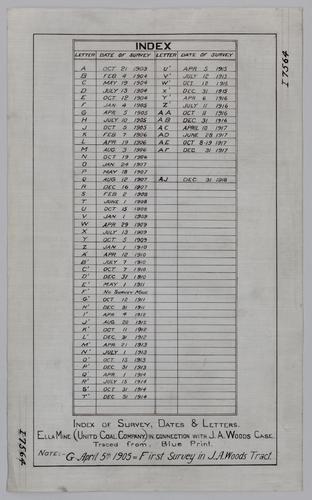 INDEX
LETTER DATE OF SURVEY LETTER DATE OF SURVEY
A OCT 21 1903 U' APR 5 1915
B FEB 4 1904 V' JULY 12 1915
C MAY 19 1904 W' OCT 12 1915
D JULY 13 1904 X' DEC 31 1915
E OCT 12 1904 Y' APR 6 1916
F JAN 4 1905 Z' JULY 11 1916
G APR 5 1905 AA OCT 11 1916
H JULY 10 1905 AB DEC 31 1916
J OCT 5 1905 AC APRIL 10 1917
K FEB 7 1906 AD JUNE 28 1917
L APR 19 1906 AE OCT 8-19 1917
M AUG 3 1906 AF DEC 31 1917
N OCT 19 1906
O JAN 24 1907
P MAY 18 1907
Q AUG 12 1907 AJ DEC 31 1918
R DEC 16 1907
S FEB 2 1908
T JUNE 1 1908
U OCT 15 1908
V JAN 1909
W APR 29 1909
X JULY 13 1909
Y OCT 5 1909
Z JAN 1 1910
A' APR 12 1910
B' JULY 7 1910
C' OCT 7 1910
D' DEC 31 1910
E' MAY 1 1911
F' NO SURVEY MADE
G' OCT 12 1911
H' DEC 31 1911
I' APR 4 1912
J' AUG 20 1912
K' OCT 11 1912
L' DEC 31 1912
M' APR 21 1913
N' JULY 1 1913
O' OCT 13 1913
P' DEC 31 1913
Q' APR 1 1914
R' JULY 15 1914
S' OCT 31 1914
T' DEC 31 1914
INDEX OF SURVEY, DATES & LETTERS.
ELLA MINE (UNITD COAL COMPANY) IN CONNECTION WITH J.A. WOODS CASE.
Traced from Blue Print.
NOTE:- G-April 5th 1905 = First Survey in J.A. Woods Tract.
I7564
I7564